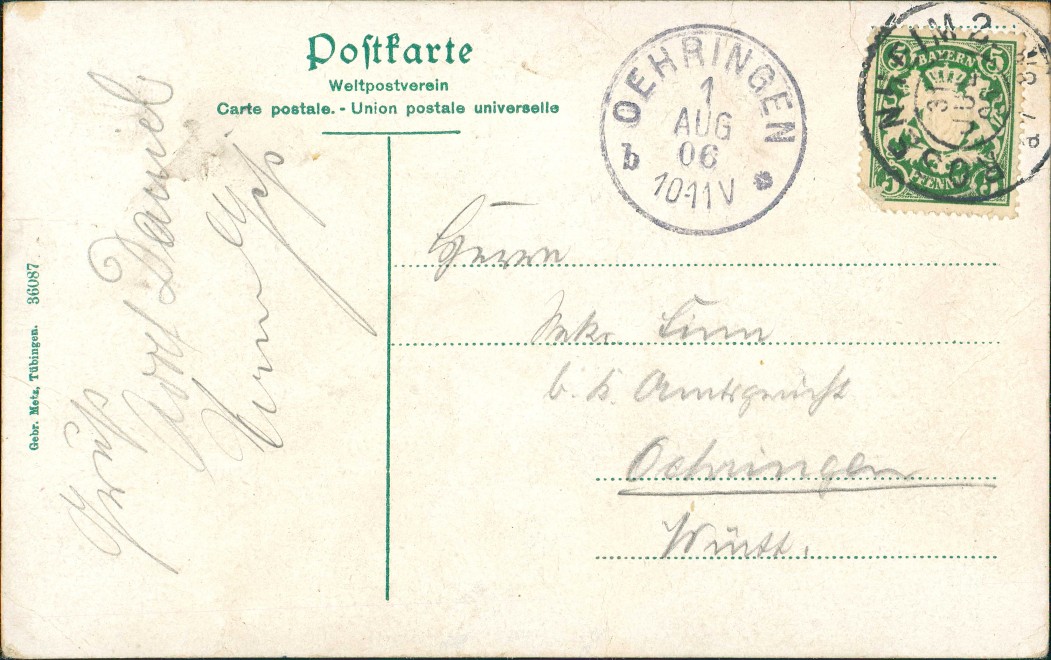 Postkarte
Weltpostverein
Carte postale. - Union postale universelle
OEHRINGEN
1
AUG
06
10-11V
b
ROSENHEIM 2
5 5
BAYERN
PFENNIG
Herrn
Sekr.
b. K. Amtsgericht
Oehringen
Württ.
Gruß
Adolf Daniel
Gebr. Metz, Tübingen. 36087